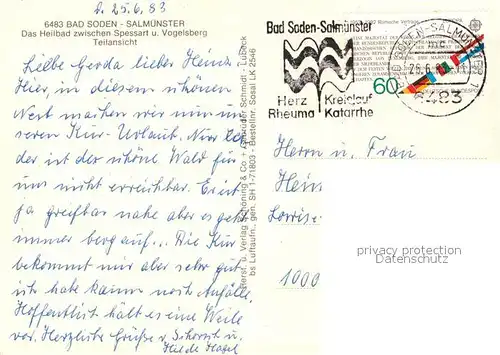 d. 25.6.83
6483 BAD SODEN - SALMÜNSTER
Das Heilbad zwischen Spessart u. Vogelsberg
Teilansicht
Liebe Gerda lieber Heinz
Hier, in diesem schönen
Nest machen wir nun un
seren Kur-Urlaub. Nur lei
der ist der schöne Wald für
uns nicht erreichbar. Er ist
ja greifbar nahe aber es geht
immer bergauf... Die Kur
bekommt mir aber sehr gut
ich habe kaum noch Anfälle.
Hoffentlich hält es eine Weile
vor. Herzliche Grüße v. Schorsch u.
Hilde Hagel
Herst. u. Verlag Schöning & Co + Gebrüder Schmidt - Lübeck
bs Luftaufn., gen. SH 1-71803 - Bestellnr. Sosal LK 2546
Bad Soden-Salmünster
Herz Kreislauf
Rheuma Katarrhe
Römische Verträge
60
BAD SODEN-SALMÜNSTER
6483
Herrn u. Frau
Hein
Lowise
1000
privacy protection
Datenschutz